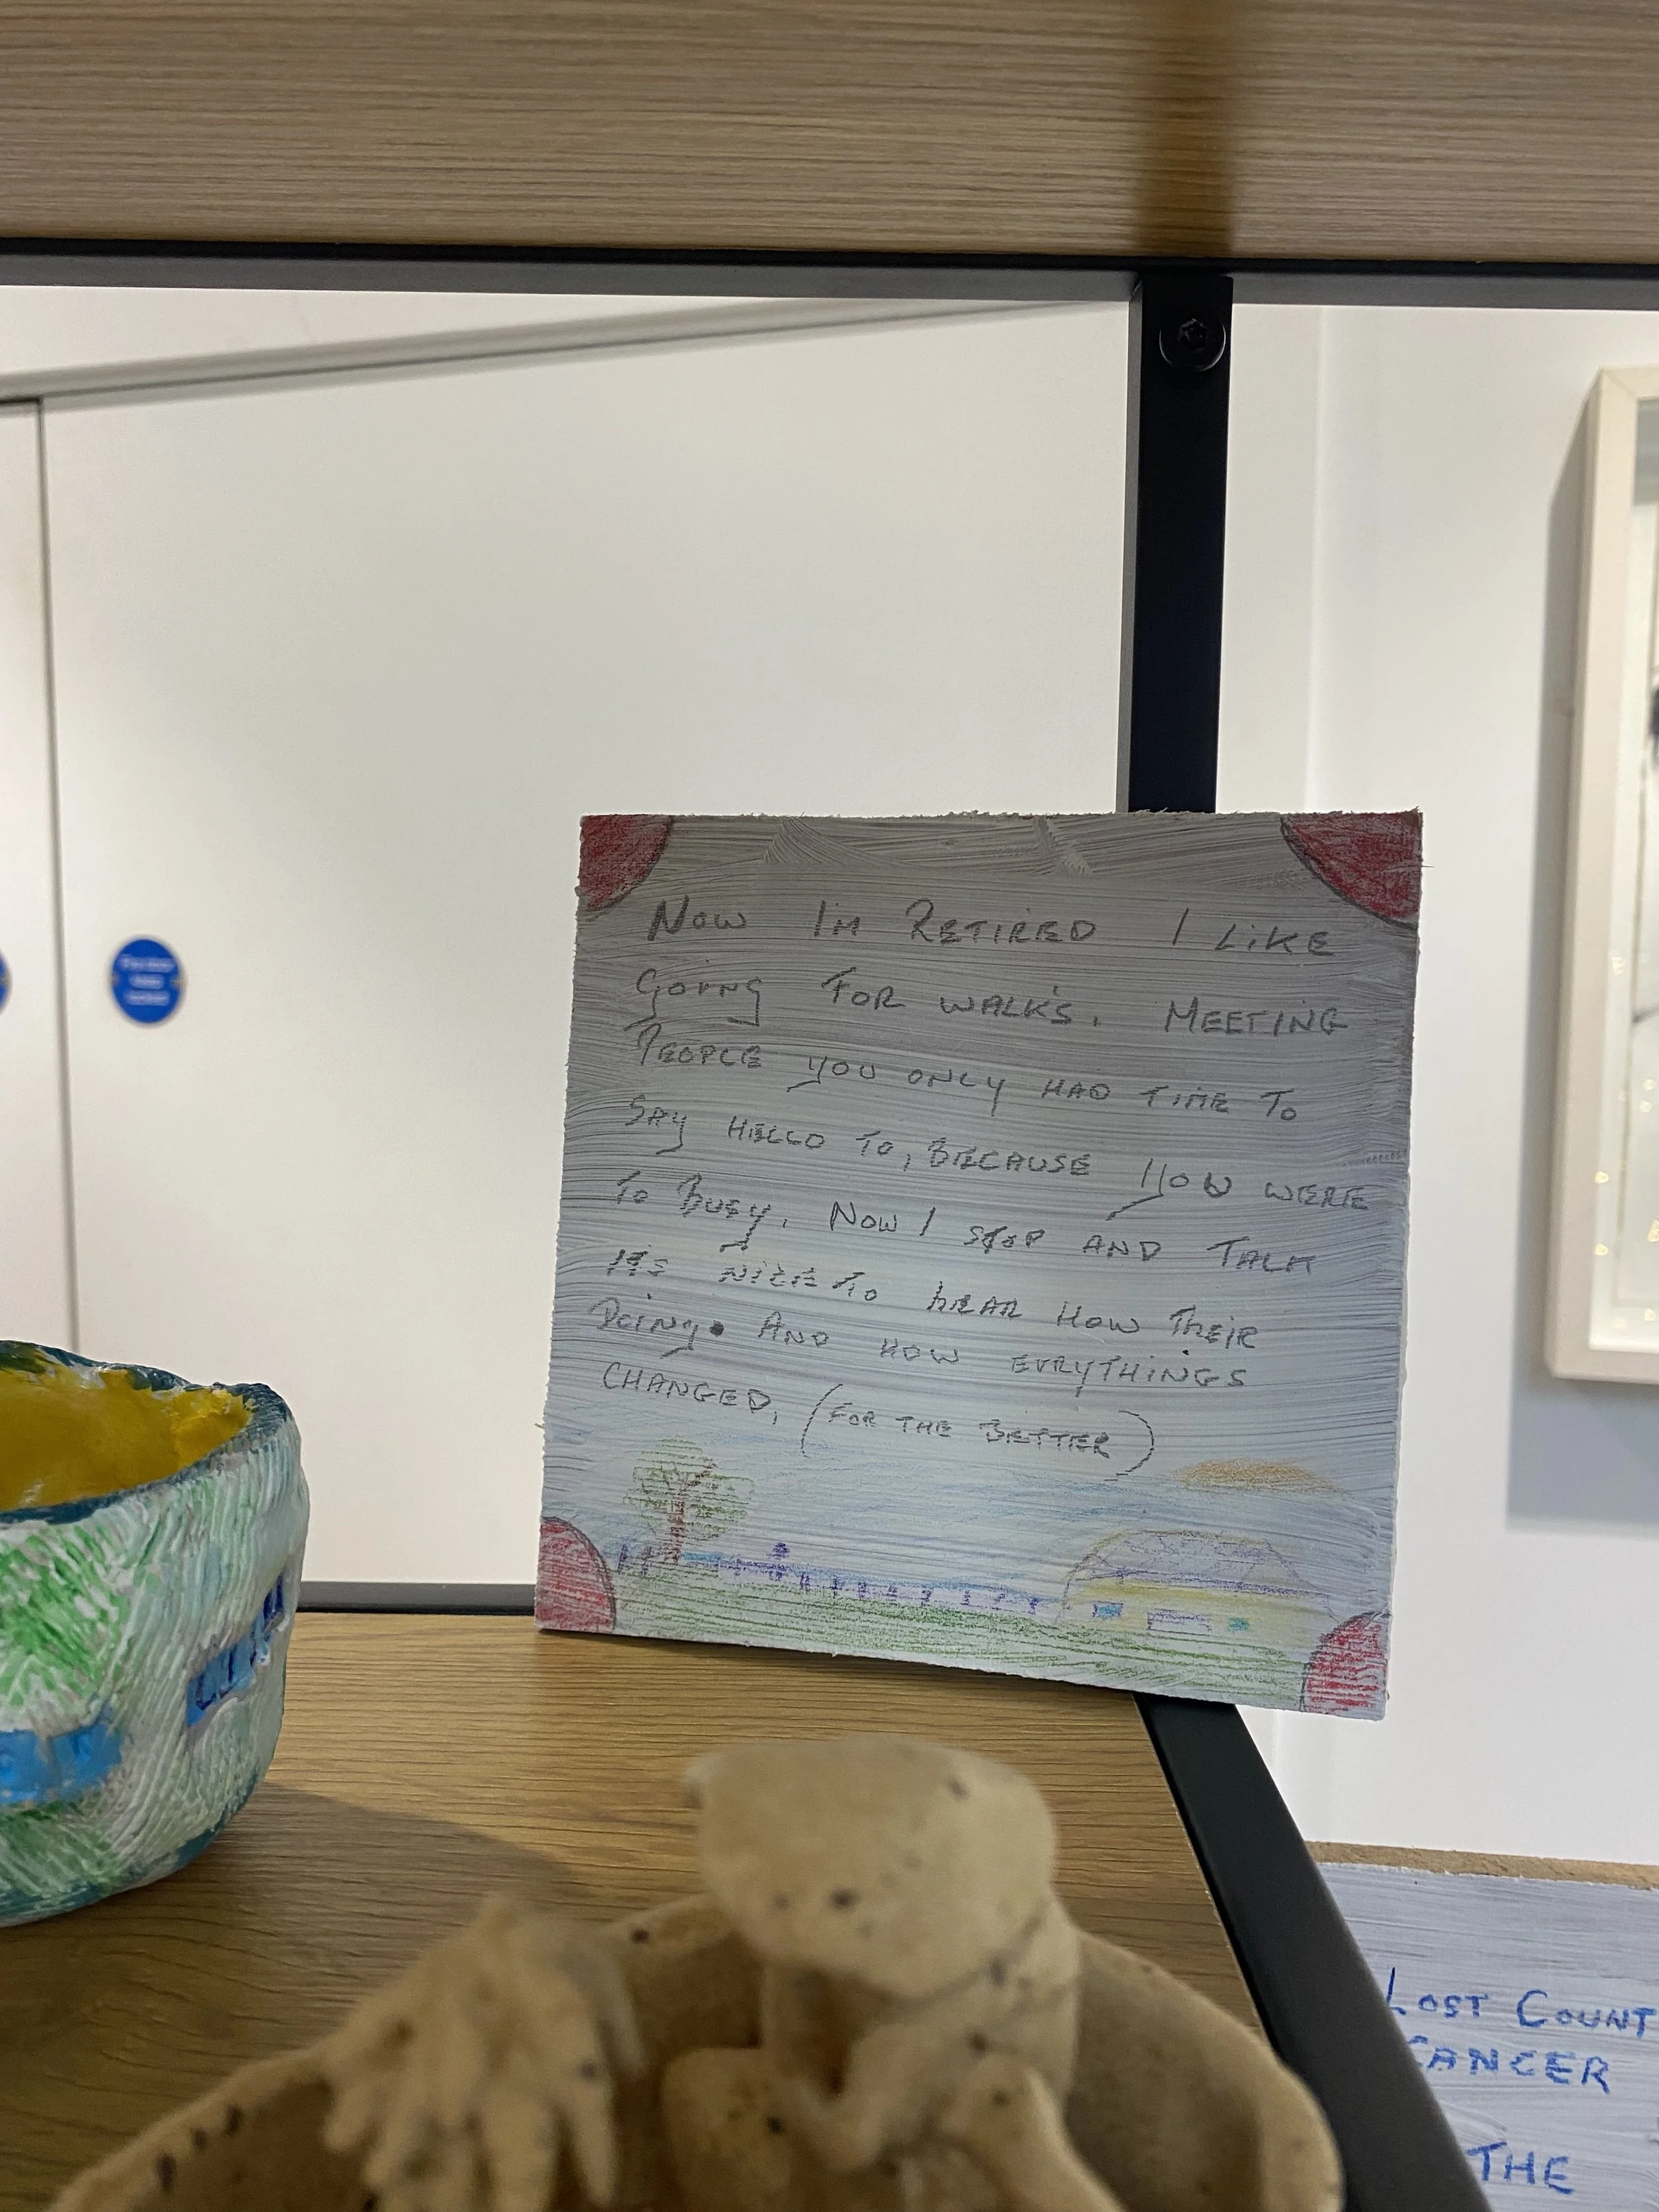 NOW I'M RETIRED I LIKE
GOING FOR WALK'S. MEETING
PEOPLE YOU ONLY HAD TIME TO
SAY HELLO TO, BECAUSE YOU WERE
TO BUSY. NOW I STOP AND TALK
IT'S NICE TO HEAR HOW THEIR
DOING. AND HOW EVRYTHINGS
CHANGED, (FOR THE BETTER)
LOST COUNT
CANCER
THE